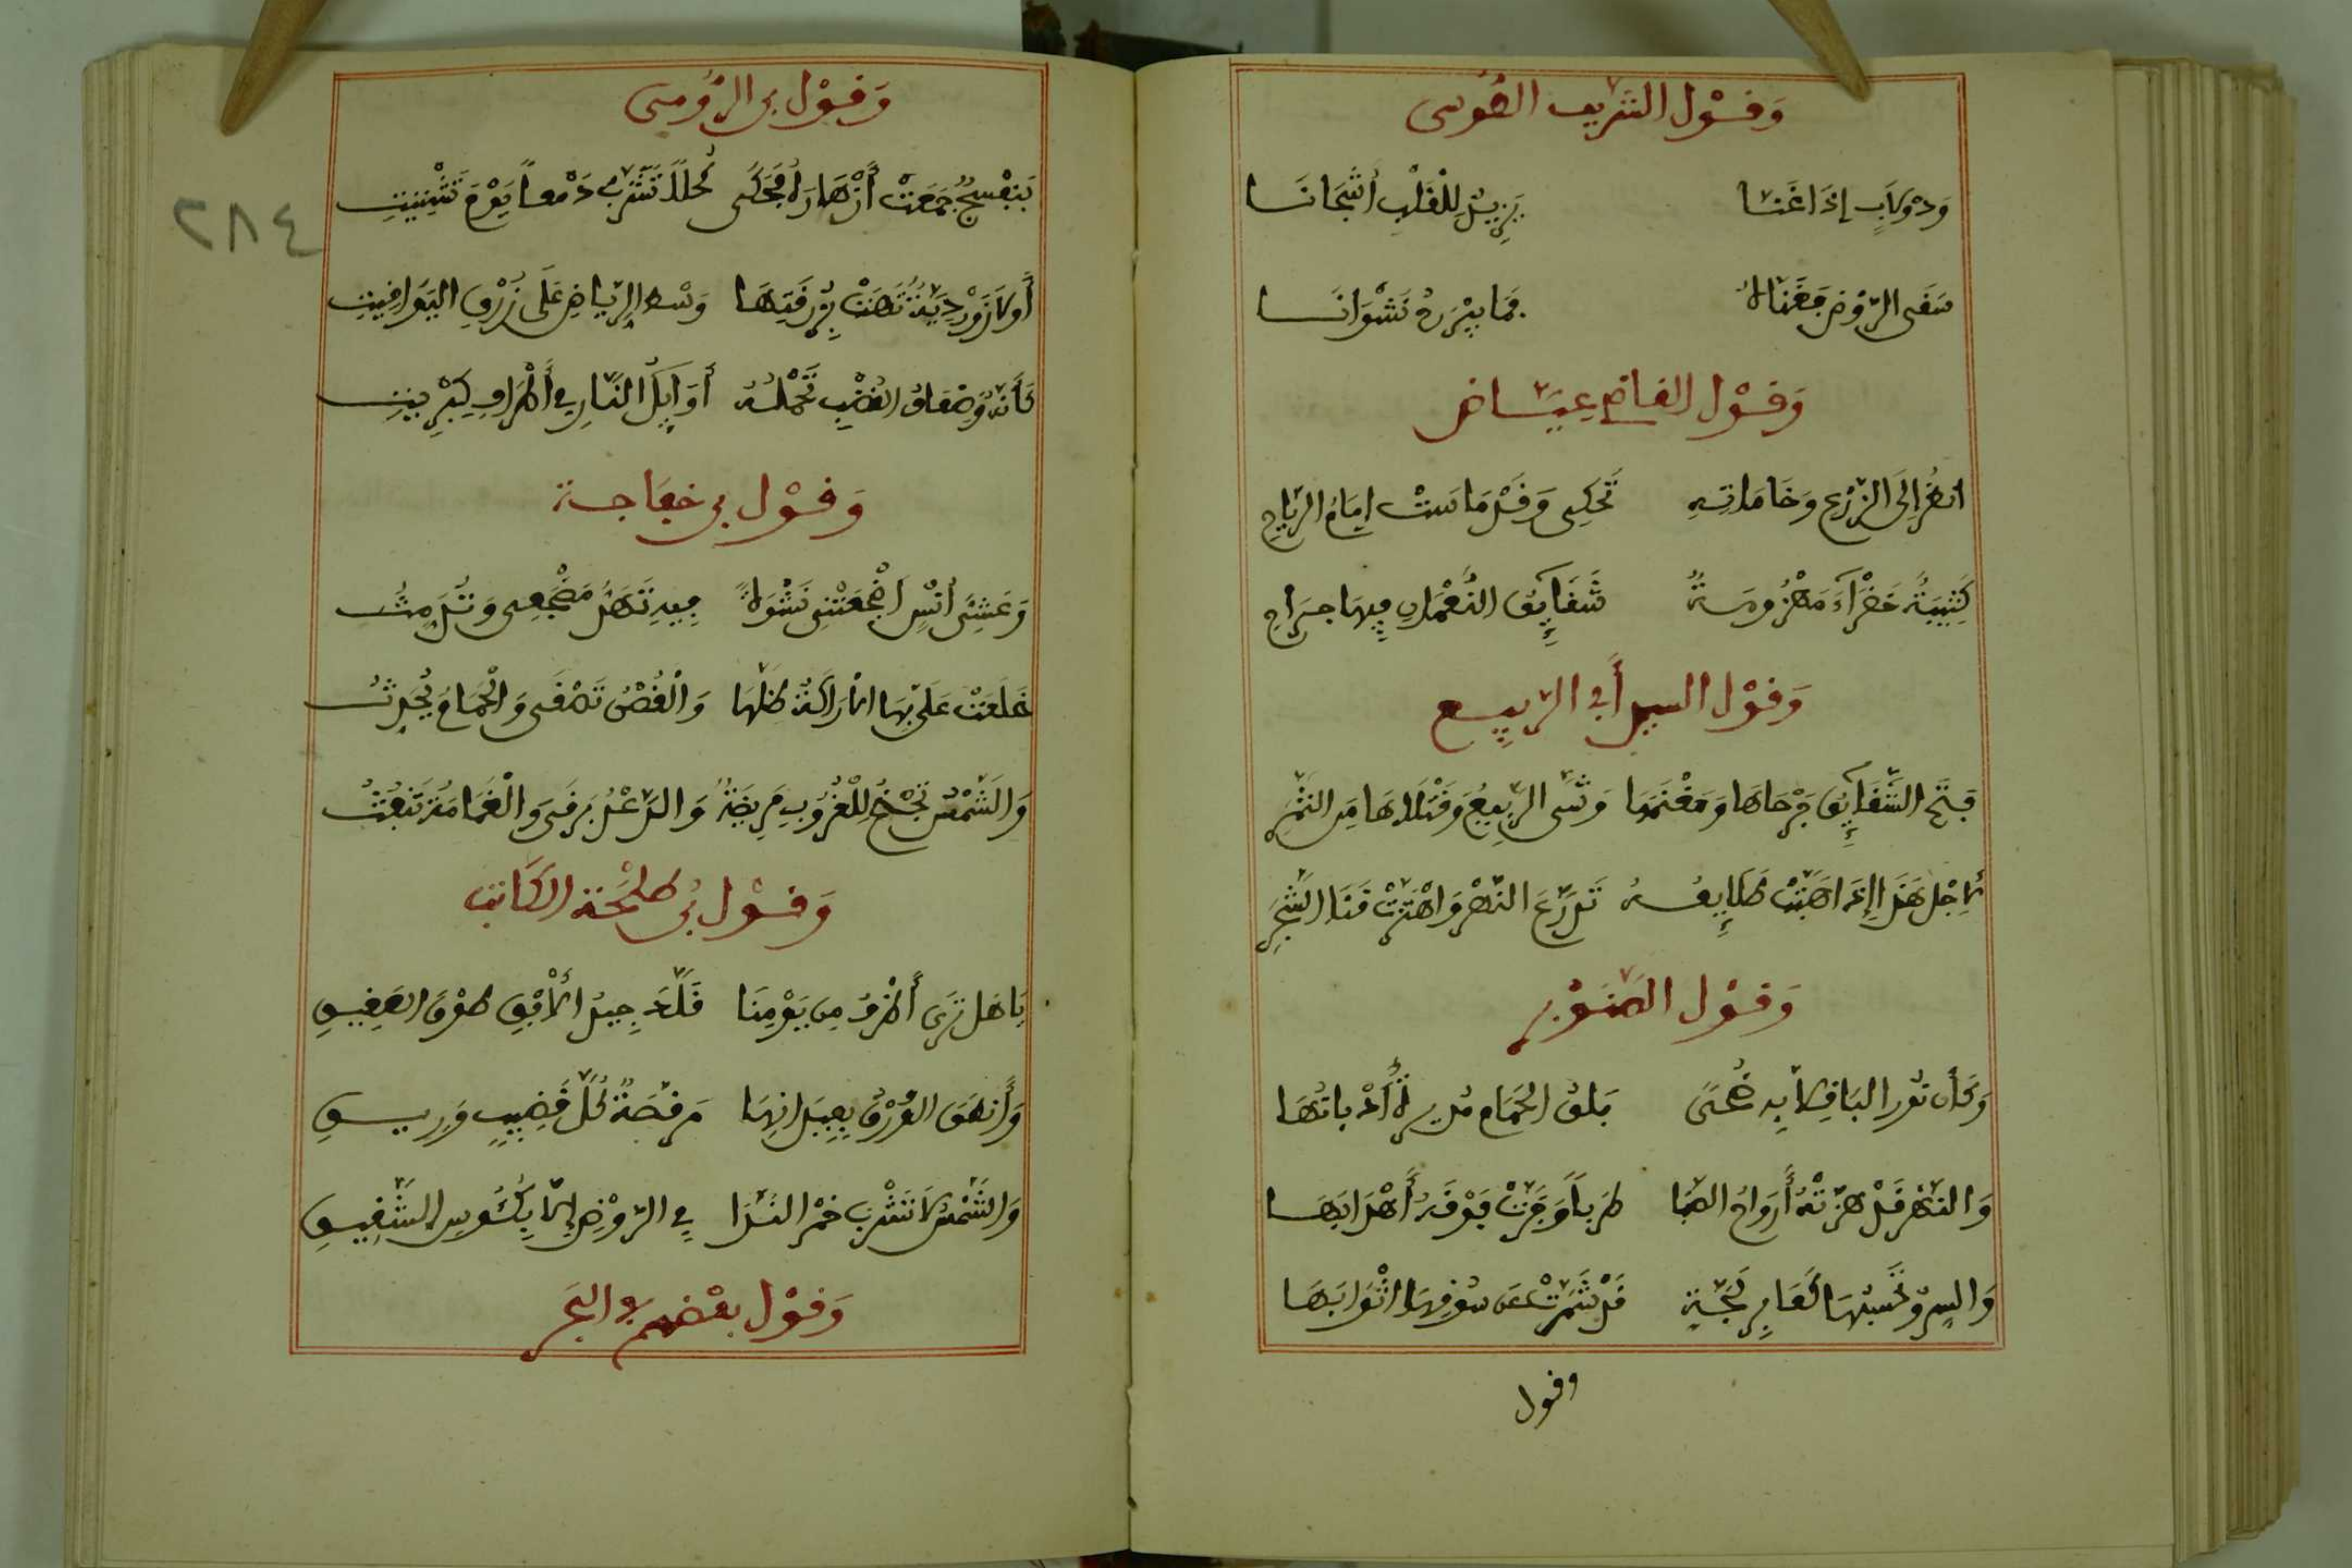 وَقَوْل الشريف الطُوسى
وَدُولَابٍ إذَا غَنَّا يَزِيدُ لِلْقَلْبِ أشْجَانَا
سَقَى الرَّوْضَ فَغَنَّاهُ فما يبْرَحُ نَشْوَانَا
وَقَوْل القاضِ عِيَّاض
انظُر إلَى الزَّرْعِ وَخَامَاتِهِ تَحْكِى وَقَدْ مَاسَتْ امَامَ الرِّيَاحِ
كَتِيبَةً خَضْرَآءَ مَهْزُومَةً شَقَايِقُ النُّعْمَانِ فِيهَا جِرَاح
وَقَوْل السيد أبي الرَّبِيع
الشَّقَايِق وَمَغْنَمَهَا وَشَّى الرَّبِيعُ وَقَتْلَاهَا مِنَ الثَّمَرِ
لأجْل هَذَا إذَا هَبَّتْ طَلَايِعُهُ تَدَرَّعَ النَّهْرُ وَاهْتَزَّتْ قَنَا الشَّجَرِ
وَقَوْل الصَّنَوْبر
وَكَأن نَوْرَ البَاقِلآءِ بِهِ ضُحىً بَلقُ الحَمَام مُدِيرةً أذْنابَهَا
وَالنَّهْر قَدْ هَزَّتْهُ أرْوَاحُ الصَّبَا طَرَباً وَجَرَّتْ فَوْقَهُ أَهْدَابَهَا
وَالسرْوُ تَحْسِبُهَا لَجَّةٍ قَدْ شَمَّرَتْ عَن سُوقِهَا اثْوَابَهَا
وقول
وَقَوْل بن الرُّومى
بَنَفْسَجٌ جَمَعَتْ أزْهَارَهُ فَحَكَى كُحْلاً تَشَرَّبَ دَمْعاً يَوْمَ تَشْتِيتِ
أَولَازَوَرْدِيَّةٌ تَزْهَتْ بِزُرْقَتِهَا وَسْط الرِّيَاضِ عَلَى زُرْقِ اليَوَاقِيتِ
كَأنَّهُ وَضِعَافُ القُضْبِ تَحْمِلُهُ أوَايِلُ النَّارِ فِي أطْرَافِ كِبْرِيتِ
وَقَوْل بن خفاجة
وَعَشِىِّ أنْسٍ أضْجَعَتْنِى نَشْوَةٌ فِيهِ تُمَهِّدُ مَضْجَعِى وَتُدَمِّثُ
خَلَعَتْ عَلَىَّ بِهَا الأرَاكَةُ ظِلَّهَا وَالْغُصْنُ تَصْغَى وَالْحَمَامُ يُحَدِّثُ
وَالشَّمْسُ تَجْنَحُ لِلْغُرُوبِ مَرِيضَةً وَالرَّعْدُ يَرْقَى وَالْغَمَامَةُ تَنْفُثُ
وَقَوْل بن طلْحَة الكَاتب
يَا هَل تَرَى أظْرَفَ مِن يَوْمِنَا قَلَّدَ جِيدَ الأفْقِ طَوْقَ العَقِيقِ
وَأَنطَقَ الوُرْقَ بِعِيدَانِهَا مَرْقَصَةً كُلَّ قَضِيبٍ وَرِيقِ
وَالشَّمْسُ لَا تَشْرَبُ خَمْرَ النَّدَا فِي الرَّوْضِ إلَّا بِكُئُوسِ الشَّقِيقِ
وَقَوْل بَعْضِهِم في البَحر
٢٨٤